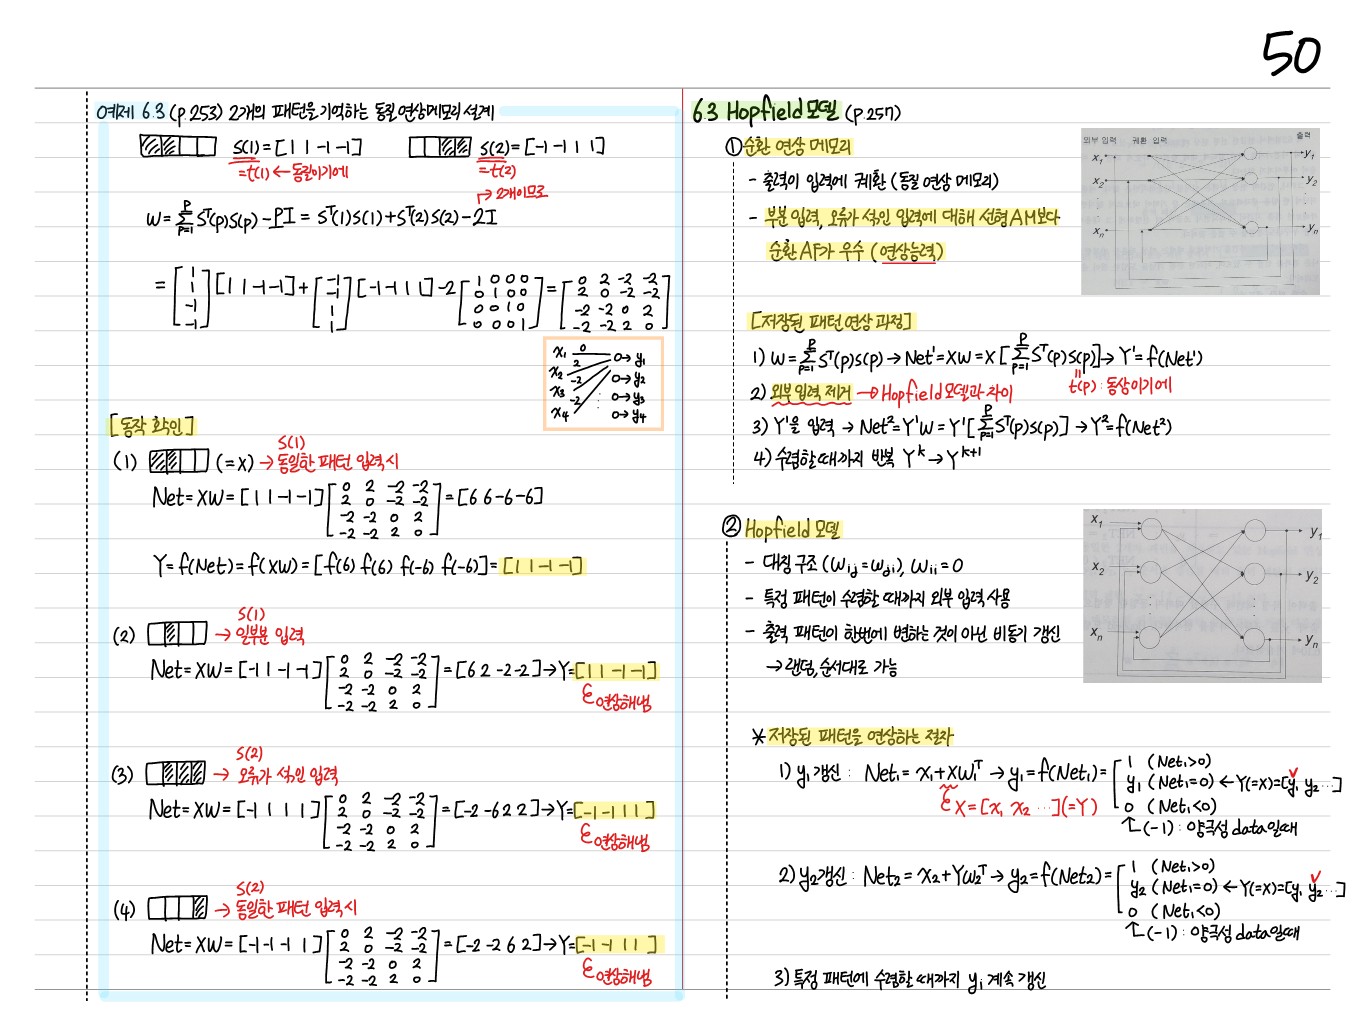 50
예제 6.3 (p.253) 2개의 패턴을 기억하는 동질 연상메모리 설계
S(1)=[1 1 -1 -1]
=t(1) ← 동질이기에
S(2)=[-1 -1 1 1]
=t(2)
→ 2개이므로
W = Σ(p=1→P) Sᵀ(p)S(p) - PI = Sᵀ(1)S(1) + Sᵀ(2)S(2) - 2I
= [1 1 -1 -1]ᵀ [1 1 -1 -1] + [-1 -1 1 1]ᵀ [-1 -1 1 1] - 2 [1 0 0 0; 0 1 0 0; 0 0 1 0; 0 0 0 1] = [0 2 -2 -2; 2 0 -2 -2; -2 -2 0 2; -2 -2 2 0]
x₁ 0 0→y₁
2
x₂ -2 0→y₂
x₃ -2 0→y₃
x₄ 0→y₄
[동작 확인]
S(1)
(1) (=X) → 동일한 패턴 입력 시
Net = XW = [1 1 -1 -1] [0 2 -2 -2; 2 0 -2 -2; -2 -2 0 2; -2 -2 2 0] = [6 6 -6 -6]
Y = f(Net) = f(XW) = [f(6) f(6) f(-6) f(-6)] = [1 1 -1 -1]
S(1)
(2) → 일부분 입력
Net = XW = [-1 1 -1 -1] [0 2 -2 -2; 2 0 -2 -2; -2 -2 0 2; -2 -2 2 0] = [6 2 -2 -2] → Y=[1 1 -1 -1]
연상해냄
S(2)
(3) → 오류가 섞인 입력
Net = XW = [-1 1 1 1] [0 2 -2 -2; 2 0 -2 -2; -2 -2 0 2; -2 -2 2 0] = [-2 -6 2 2] → Y=[-1 -1 1 1]
연상해냄
S(2)
(4) → 동일한 패턴 입력 시
Net = XW = [-1 -1 -1 1] [0 2 -2 -2; 2 0 -2 -2; -2 -2 0 2; -2 -2 2 0] = [-2 -2 6 2] → Y=[-1 -1 1 1]
연상해냄
6.3 Hopfield 모델 (p.257)
① 순환 연상 메모리
- 출력이 입력에 궤환 (동질 연상 메모리)
- 부분 입력, 오류가 섞인 입력에 대해 선형 AM보다
순환 AF가 우수 (연상능력)
외부 입력 궤환 입력 출력
x₁ y₁
x₂ y₂
xₙ yₙ
[저장된 패턴 연상 과정]
1) W = Σ(p=1→P) Sᵀ(p)S(p) → Net¹ = XW = X [Σ(p=1→P) Sᵀ(p)S(p)] → Y¹ = f(Net¹)
t(p) : 동상이기에
2) 외부 입력 제거 → Hopfield 모델과 차이
3) Y¹을 입력 → Net² = Y¹W = Y¹[Σ(p=1→P) Sᵀ(p)S(p)] → Y² = f(Net²)
4) 수렴할 때까지 반복 Yᵏ → Yᵏ⁺¹
② Hopfield 모델
- 대칭 구조 (wᵢⱼ = wⱼᵢ), wᵢᵢ = 0
- 특정 패턴이 수렴할 때까지 외부 입력 사용
- 출력 패턴이 한번에 변하는 것이 아닌 비동기 갱신
→ 랜덤, 순서대로 가능
x₁ y₁
x₂ y₂
xₙ yₙ
* 저장된 패턴을 연상하는 절차
1) y₁ 갱신 : Net₁ = x₁ + Xw₁ᵀ → y₁ = f(Net₁) = [1 (Net₁>0)
y₁ (Net₁=0) ← Y(=X)=[y₁ y₂ …]
0 (Net₁<0)
X = [x₁ x₂ …] (=Y)
(-1) : 양극성 data일때
2) y₂ 갱신 : Net₂ = x₂ + Yw₂ᵀ → y₂ = f(Net₂) = [1 (Net₁>0)
y₂ (Net₁=0) ← Y(=X)=[y₁ y₂ …]
0 (Net₁<0)
(-1) : 양극성 data일때
3) 특정 패턴에 수렴할 때까지 yᵢ 계속 갱신